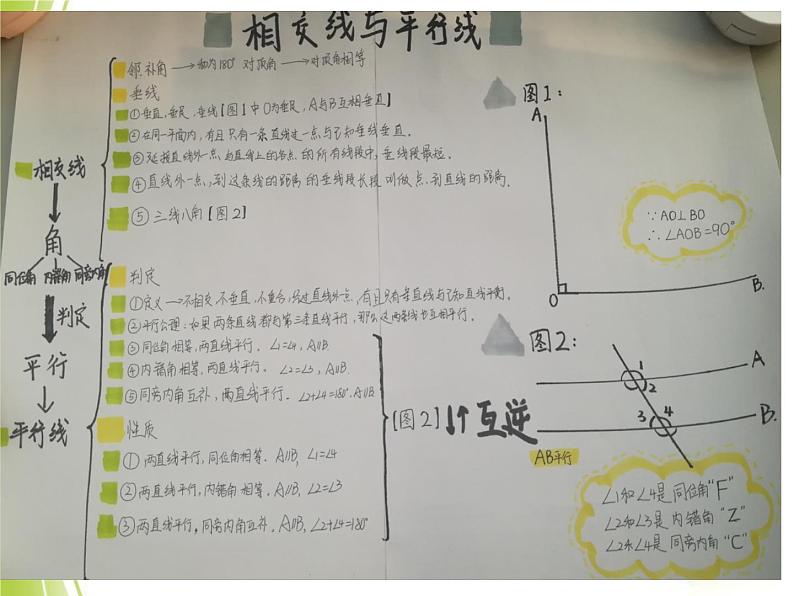 相交线与平行线
邻补角→和为180° 对顶角→对顶角相等
垂线
①垂直,垂足,垂线【图1中O为垂足,A与B互相垂直】
②在同一平面内,有且只有一条直线过一点与已知垂线垂直.
③连接直线外一点与直线上的各点的所有线段中,垂线段最短.
④直线外一点,到这条线的距离的垂线段长段叫做点到直线的距离.
⑤三线八角【图2】
相交线
角
同位角 内错角 同旁内角
判定
平行
平行线
判定
①定义→不相交,不垂直,不重合,经过直线外一点,有且只有一条直线与已知直线平衡.
②平行公理:如果两条直线都与第三条直线平行,那么这两条线也互相平行.
③同位角相等,两直线平行. ∠1=∠4, A∥B.
④内错角相等,两直线平行. ∠2=∠3, A∥B.
⑤同旁内角互补,两直线平行. ∠2+∠4=180° A∥B
性质
①两直线平行,同位角相等. A∥B, ∠1=∠4
②两直线平行,内错角相等. A∥B, ∠2=∠3
③两直线平行,同旁内角互补. A∥B, ∠2+∠4=180°
[图2]↓↑互逆
图1:
A
O
B.
∵AO⊥BO
∴∠AOB=90°
图2:
1
2
A
3
4
B.
AB平行
∠1和∠4是同位角"F"
∠2和∠3是内错角"Z"
∠2和∠4是同旁内角"C"